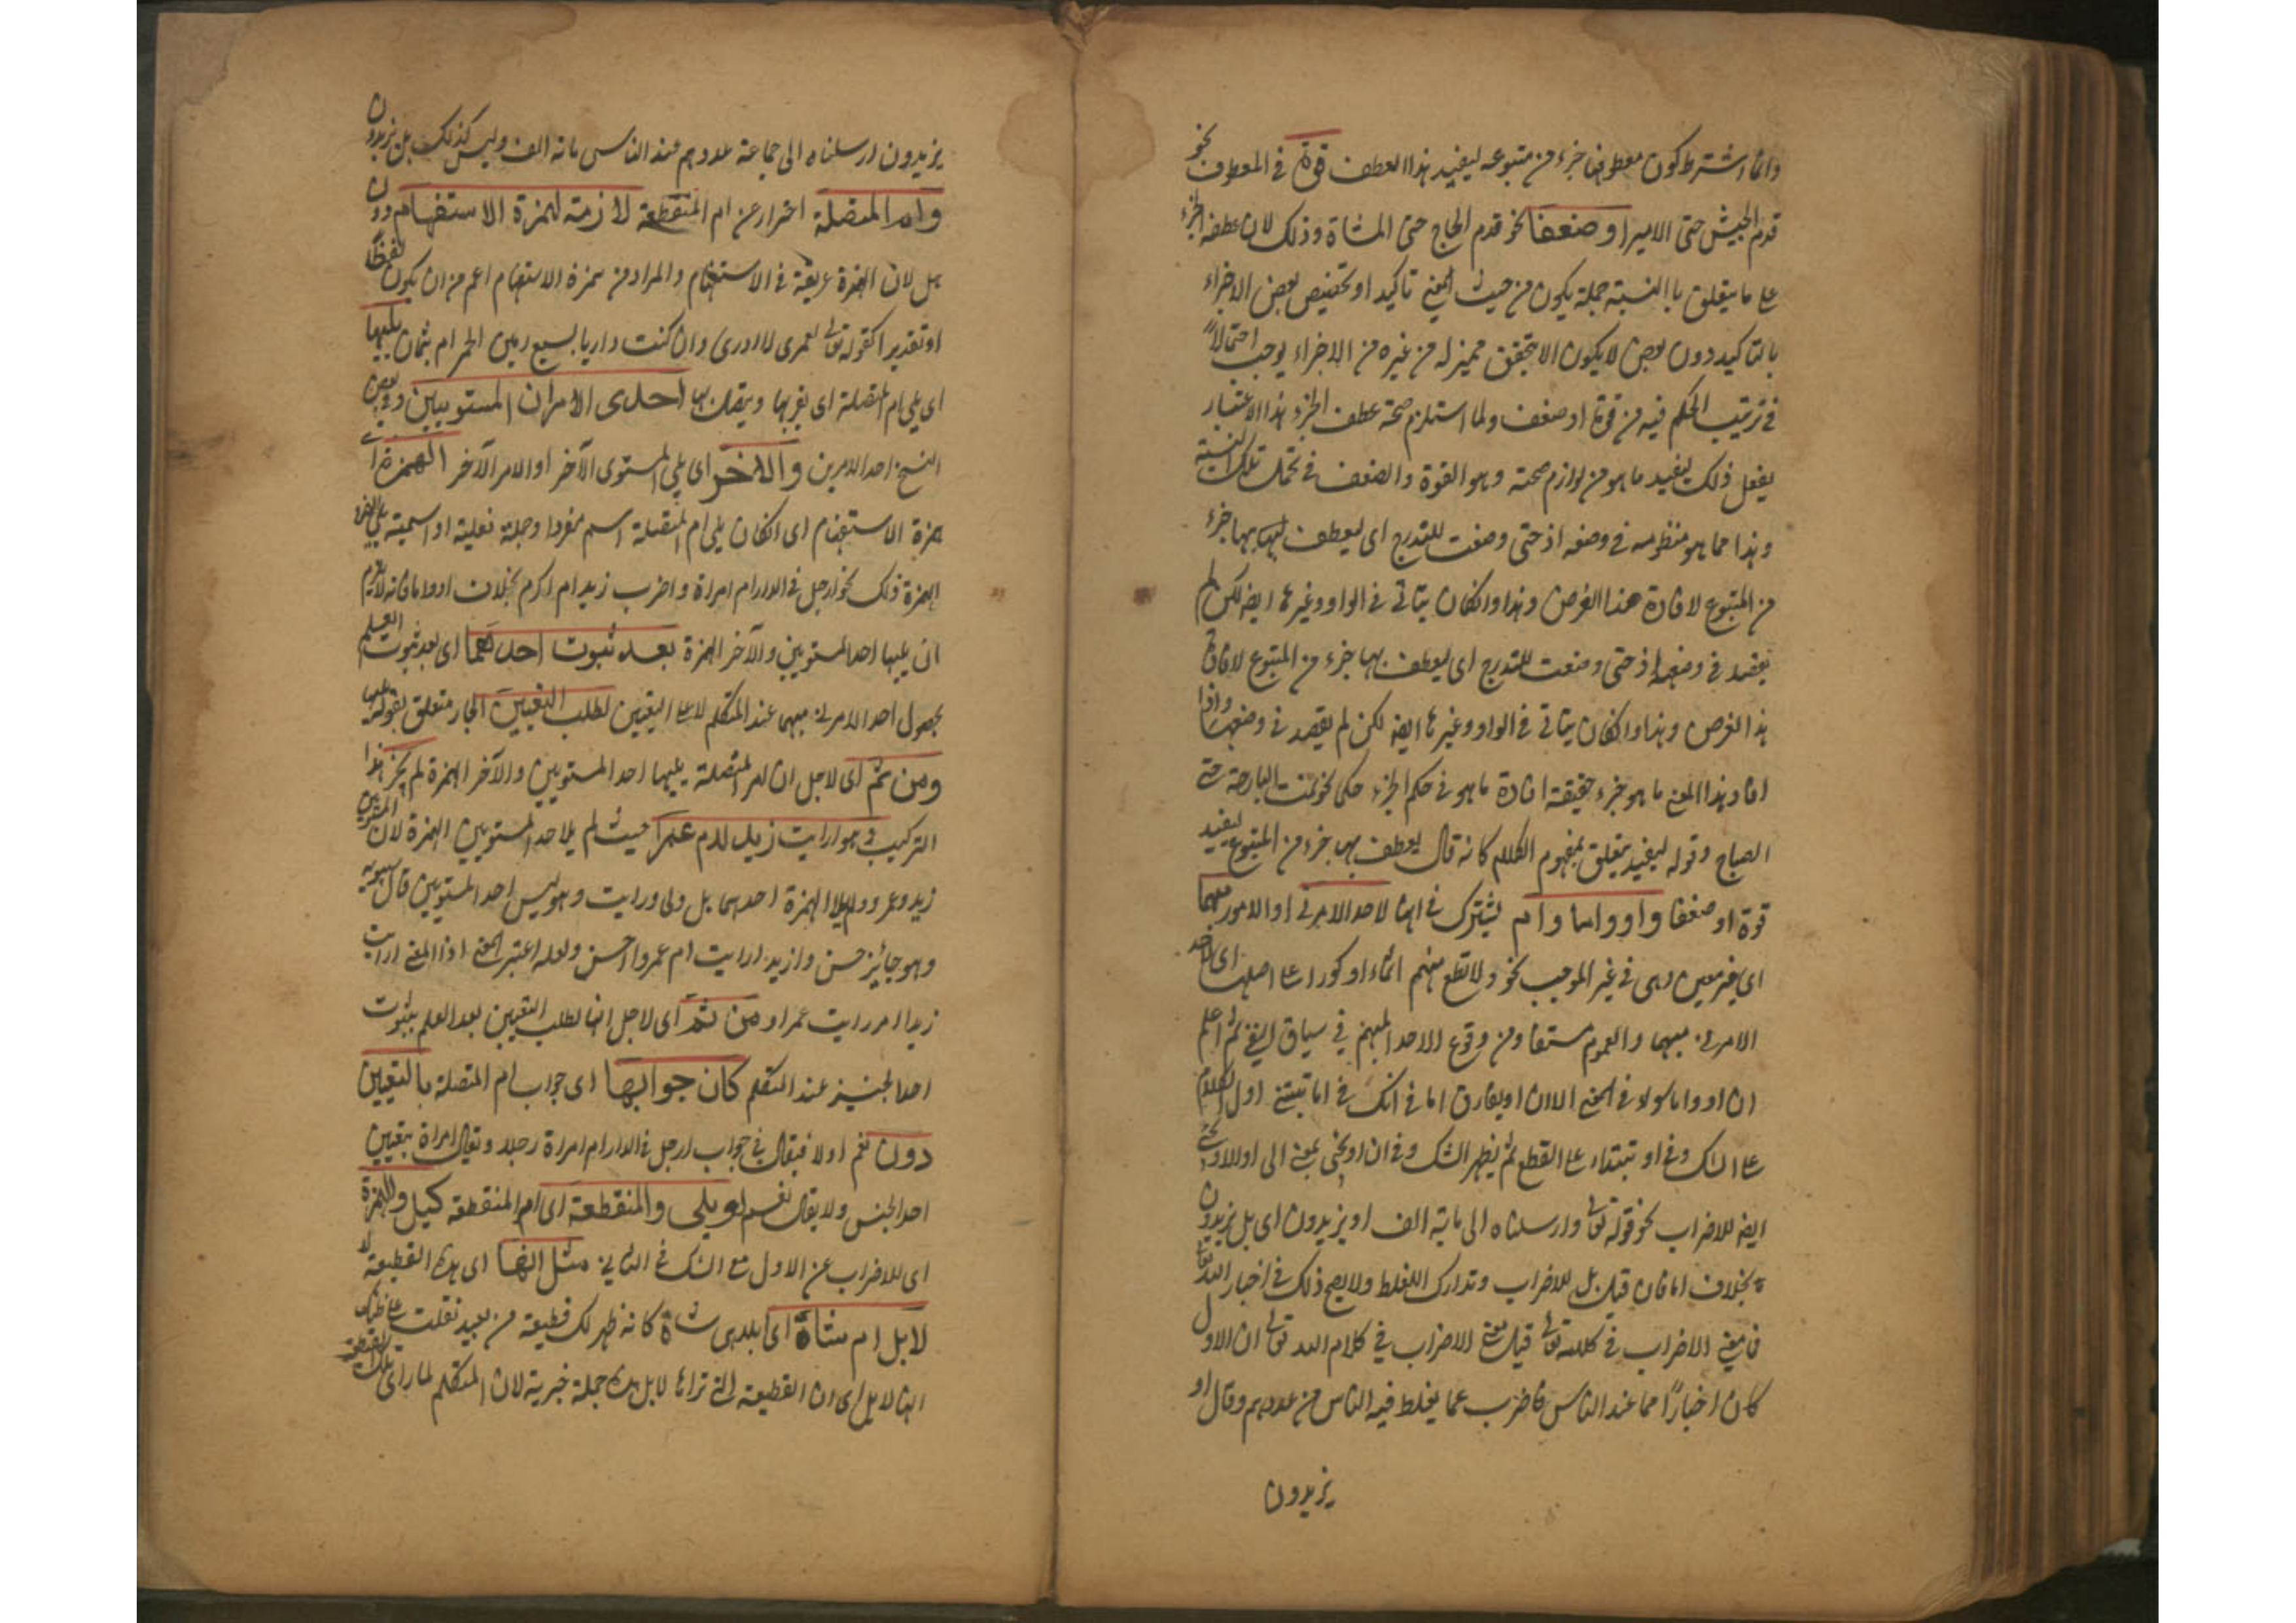 وانما اشترط كون معطوفها جزء من متبوعه ليفيد هذا العطف قوة في المعطوف نحو
قدم الجيش حتى الامير او ضعفا نحو قدم الحاج حتى المشاة وذلك لان عطف الجزء
على ما يتعلق با النسبة جملة يكون من حيث المعنى تاكيد او تخصيص بعض الاجزاء
بالتاكيد دون بعض لا يكون الا بتحقق مميز له من غيره من الاجزاء يوجب احتمالاً
في ترتيب الحكم فيه من قوة او ضعف ولما استلزم صحة عطف الجزء هذا الاعتبار
يفعل ذلك ليفيد ما هو من لوازم صحته وهو القوة والضعف في تحمل تلك النسبة
وهذا مما هو منظومه في وضعه اذ حتى وضعت للتدرج اى ليعطف بها جزء
من المتبوع لافادة هذا الغرض وهذا وانكان يتاتى في الواو وغيرها ايضا لكن لم
يقصد في وضعها اذ حتى وضعت للتدرج اى ليعطف بها جزء من المتبوع لافادة
هذا الغرض وهذا وانكان يتاتى في الواو وغيرها ايضا لكن لم يقصد في وضعها واذا
افاد هذا المعنى ما هو جزء حقيقة افادة ما هو في حكم الجزء حكى نحو نمت البارحة حتى
الصباح وقوله ليفيد يتعلق بمفهوم الكلام كانه قال يعطف بها جزء من المتبوع ليفيد
قوة او ضعفا واو واما وام يشترك في انها لاحد الامرين او الامور مبهما
اى غير معين وهى في غير الموجب نحو ولا تطع منهم اثما او كفورا على اصلها اى لاحد
الامرين مبهما والعموم مستفاد من وقوع الاحد المبهم في سياق النفي ثم اعلم
ان او واما سواء في المعنى الا ان او يفارق اما في انك في اما تبتنى اول الكلام
على الشك وفى او تبتداء على القطع ثم يظهر الشك وفى ان او يجئ بمعنى الى او الا ويجئ
ايضا للاضراب نحو قوله تعالى وارسلناه الى ماية الف او يزيدون اى بل يزيدون
بخلاف اما فان قيل بل للاضراب وتدارك الغلط ولا يصح ذلك في اخبار الله تعالى
فما معنى الاضراب في كلامه تعالى قيل معنى الاضراب في كلام الله تعالى ان الاول
كان اخباراً مما عند الناس فاضرب عما يغلط فيه الناس من عددهم وقال او
يزيدون
يزيدون ارسلناه الى جماعة عددهم عند الناس مائة الف وليس كذلك بل يزيدون
وام المتصلة احتراز عن ام المنقطعة لازمة لهمزة الاستفهام دون
هل لان الهمزة عريقة في الاستفهام والمراد من همزة الاستفهام اعم من ان يكون لفظاً
او تقديرا كقوله تعالى لعمرى لا ادرى وان كنت داريا بسبع رمين الجمر ام بثمان يليها
اى يلى ام المتصلة اى يقربها ويتصل بها احدى الامران المستويين وفى بعض
النسخ احد الامرين والاخر اى يلى المستوى الآخر او الامر الآخر الهمزة اى
همزة الاستفهام اى انكان يلى ام المتصلة اسم مفردا وجملة فعلية او اسمية يلى الهمزة
الهمزة ذلك نحو ارجل في الدار ام امراة و اضرب زيد ام اكرم بخلاف او واما فانه لا يلزم
ان يليها احد المستويين والآخر الهمزة بعد ثبوت احدهما اى بعد ثبوت العلم
بحصول احد الامرين مبهما عند المتكلم لا على اليقين لطلب التعيين الجار متعلق بقوله يلى
ومن ثم اى لاجل ان ام المتصلة يليها احد المستويين والآخر الهمزة لم يجز هذا
التركيب وهو ارايت زيدا ام عمرا حيث لم يلا احد المستويين الهمزة لان المستويين
زيد وعمرو ولم يلا الهمزة احدهما بل ولى ورايت وهو ليس احد المستويين قال سيبويه
وهو جائيز حسن و ازيد ارايت ام عمروا حسن ولعله اعتبر المعنى اذ المعنى ارايت
زيدا ام رايت عمرا و من ثم اى لاجل انها لطلب التعيين بعد العلم بثبوت
احد الجنسيز عند المتكلم كان جوابها اى جواب ام المتصلة بالتعيين
دون نعم اولا فيقال في جواب ارجل في الدار ام امراة رجل و يقال امراة بتعيين
احد الجنس ولا يقال نعم او بلى والمنقطعة اى ام المنقطعة كبل والهمزة
اى للاضراب عن الاول مع الشك في الثانى مثل انها اى هذه القطيعة لا
لابل ام شاة اى بل هى شاة كانه ظهر لك قطيعة من بعيد نقلت على ظنك
انها لابل اى ان القطيعة التى تراها لابل هذه جملة خبرية لان المتكلم لما راى تلك القطيعة